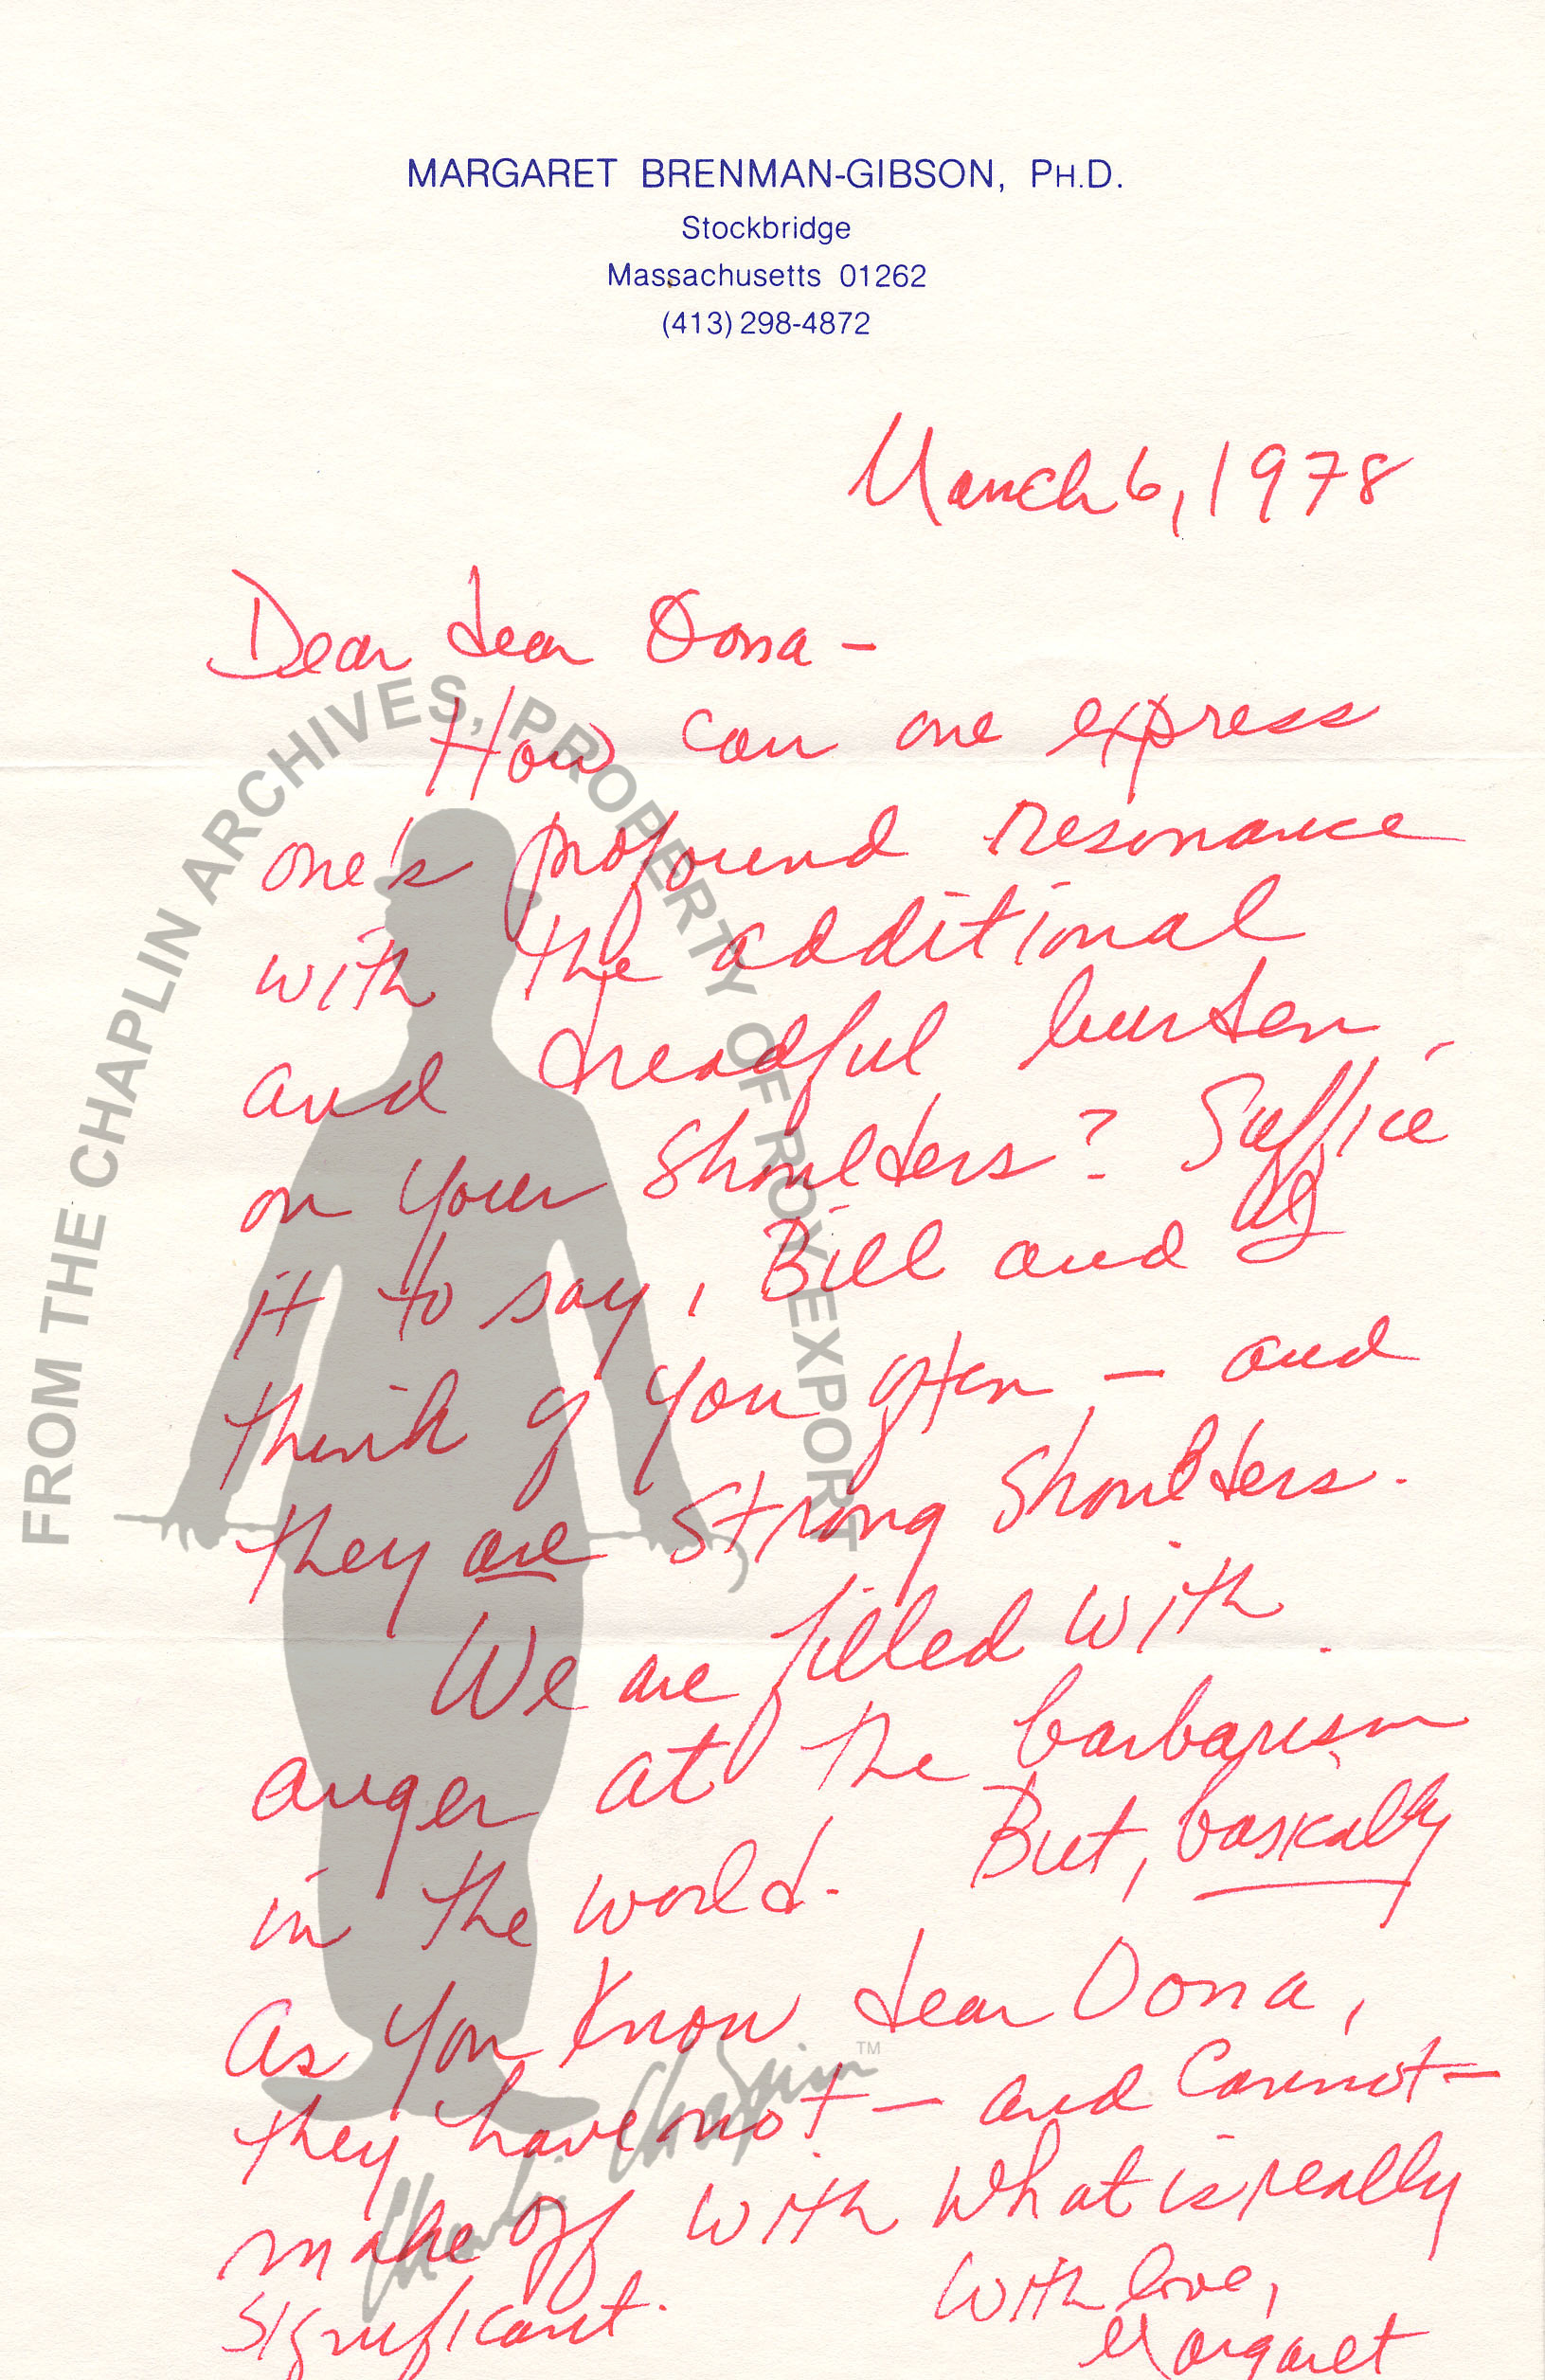 MARGARET BRENMAN-GIBSON, PH.D.
Stockbridge
Massachusetts 01262
(413) 298-4872
March 6, 1978
Dear dear Oona –
How can one express
one's profound resonance
with the additional
and dreadful burden
on your shoulders? Suffice
it to say, Bill and I
think of you often – and
they are strong shoulders.
We are filled with
anger at the barbarism
in the world. But, basically
as you know dear Oona,
they have not – and cannot –
make off with what is really
significant.
With love,
Margaret
FROM THE CHAPLIN ARCHIVES, PROPERTY OF ROY EXPORT
Charlie Chaplin TM